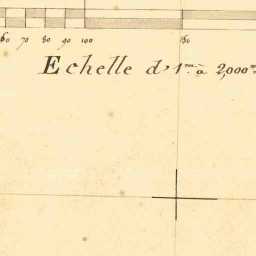 60 70 80 90 100 150
Echelle de 1m. à 2,000m